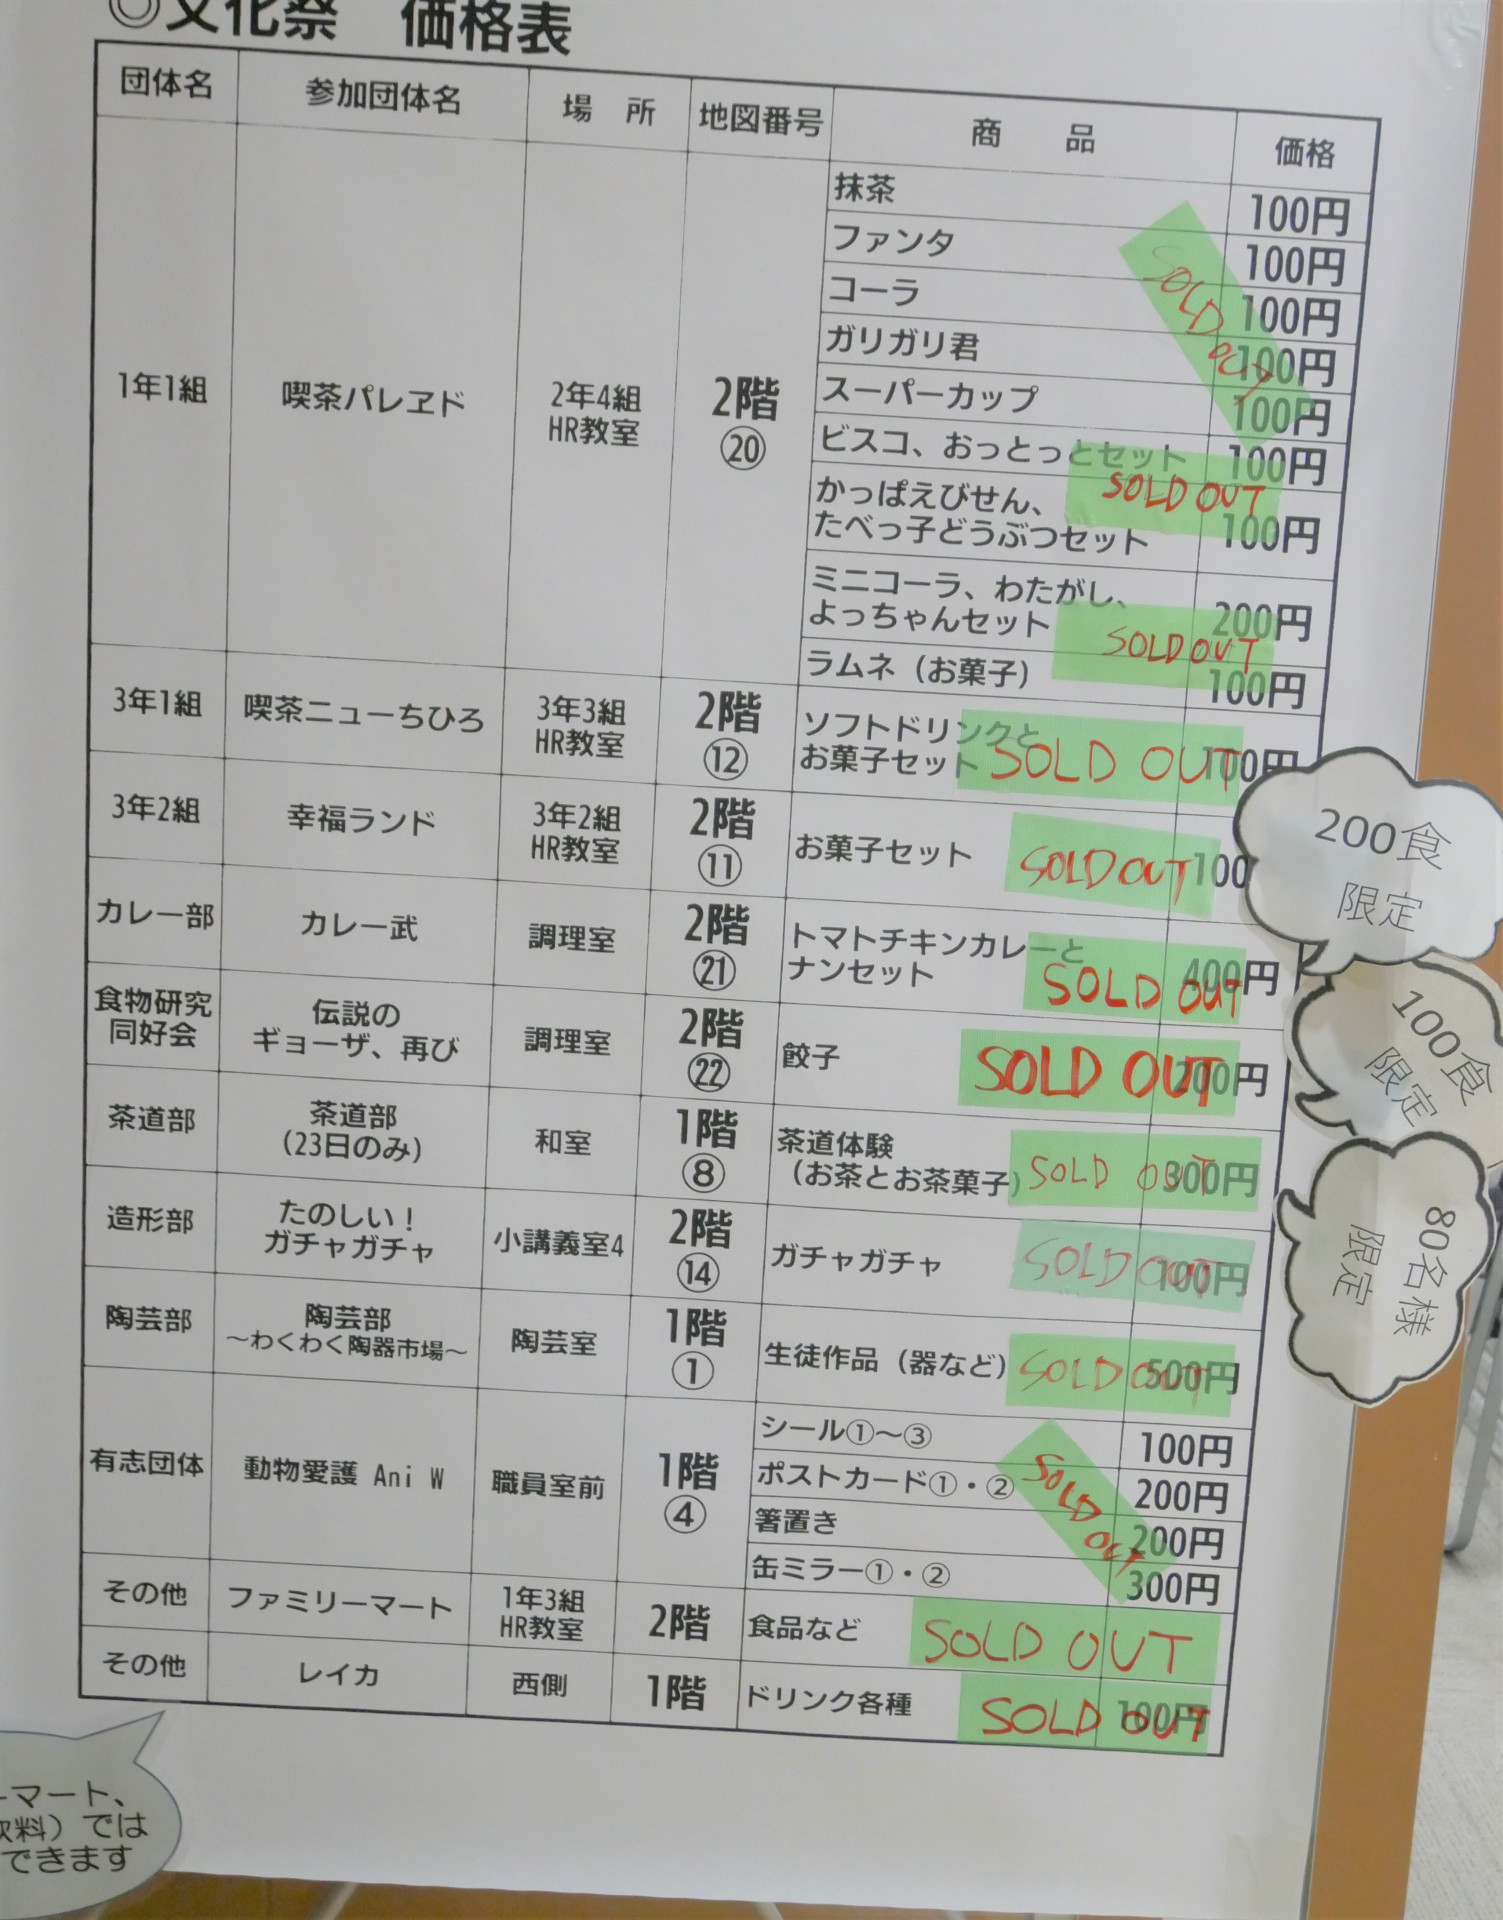 ◎文化祭　価格表
団体名 参加団体名 場　所 地図番号 商　品 価格
1年1組 喫茶パレヱド 2年4組 HR教室 2階 ⑳
抹茶 100円
ファンタ 100円
コーラ 100円
ガリガリ君 100円
スーパーカップ 100円
SOLD OUT
ビスコ、おっとっとセット 100円
かっぱえびせん、
たべっ子どうぶつセット 100円
SOLD OUT
ミニコーラ、わたがし、
よっちゃんセット 200円
SOLD OUT
ラムネ（お菓子） 100円
3年1組 喫茶ニューちひろ 3年3組 HR教室 2階 ⑫
ソフトドリンクと
お菓子セット SOLD OUT 100円
3年2組 幸福ランド 3年2組 HR教室 2階 ⑪
お菓子セット SOLD OUT 100
カレー部 カレー武 調理室 2階 ㉑
トマトチキンカレーと
ナンセット SOLD OUT 400円
食物研究
同好会
伝説の
ギョーザ、再び
調理室 2階 ㉒ 餃子 SOLD OUT 200円
茶道部 茶道部
（23日のみ）
和室 1階 ⑧
茶道体験
（お茶とお茶菓子） SOLD OUT 300円
造形部 たのしい！
ガチャガチャ
小講義室4 2階 ⑭ ガチャガチャ SOLD OUT 100円
陶芸部 陶芸部
～わくわく陶器市場～
陶芸室 1階 ① 生徒作品（器など） SOLD OUT 500円
有志団体 動物愛護 Ani W 職員室前 1階 ④
シール①～③ 100円
ポストカード①・② 200円
箸置き 200円
缶ミラー①・② 300円
SOLD OUT
その他 ファミリーマート 1年3組 HR教室 2階 食品など SOLD OUT
その他 レイカ 西側 1階 ドリンク各種 SOLD OUT 100円
200食
限定
100食
限定
80名様
限定
ーマート、
飲料）では
できます